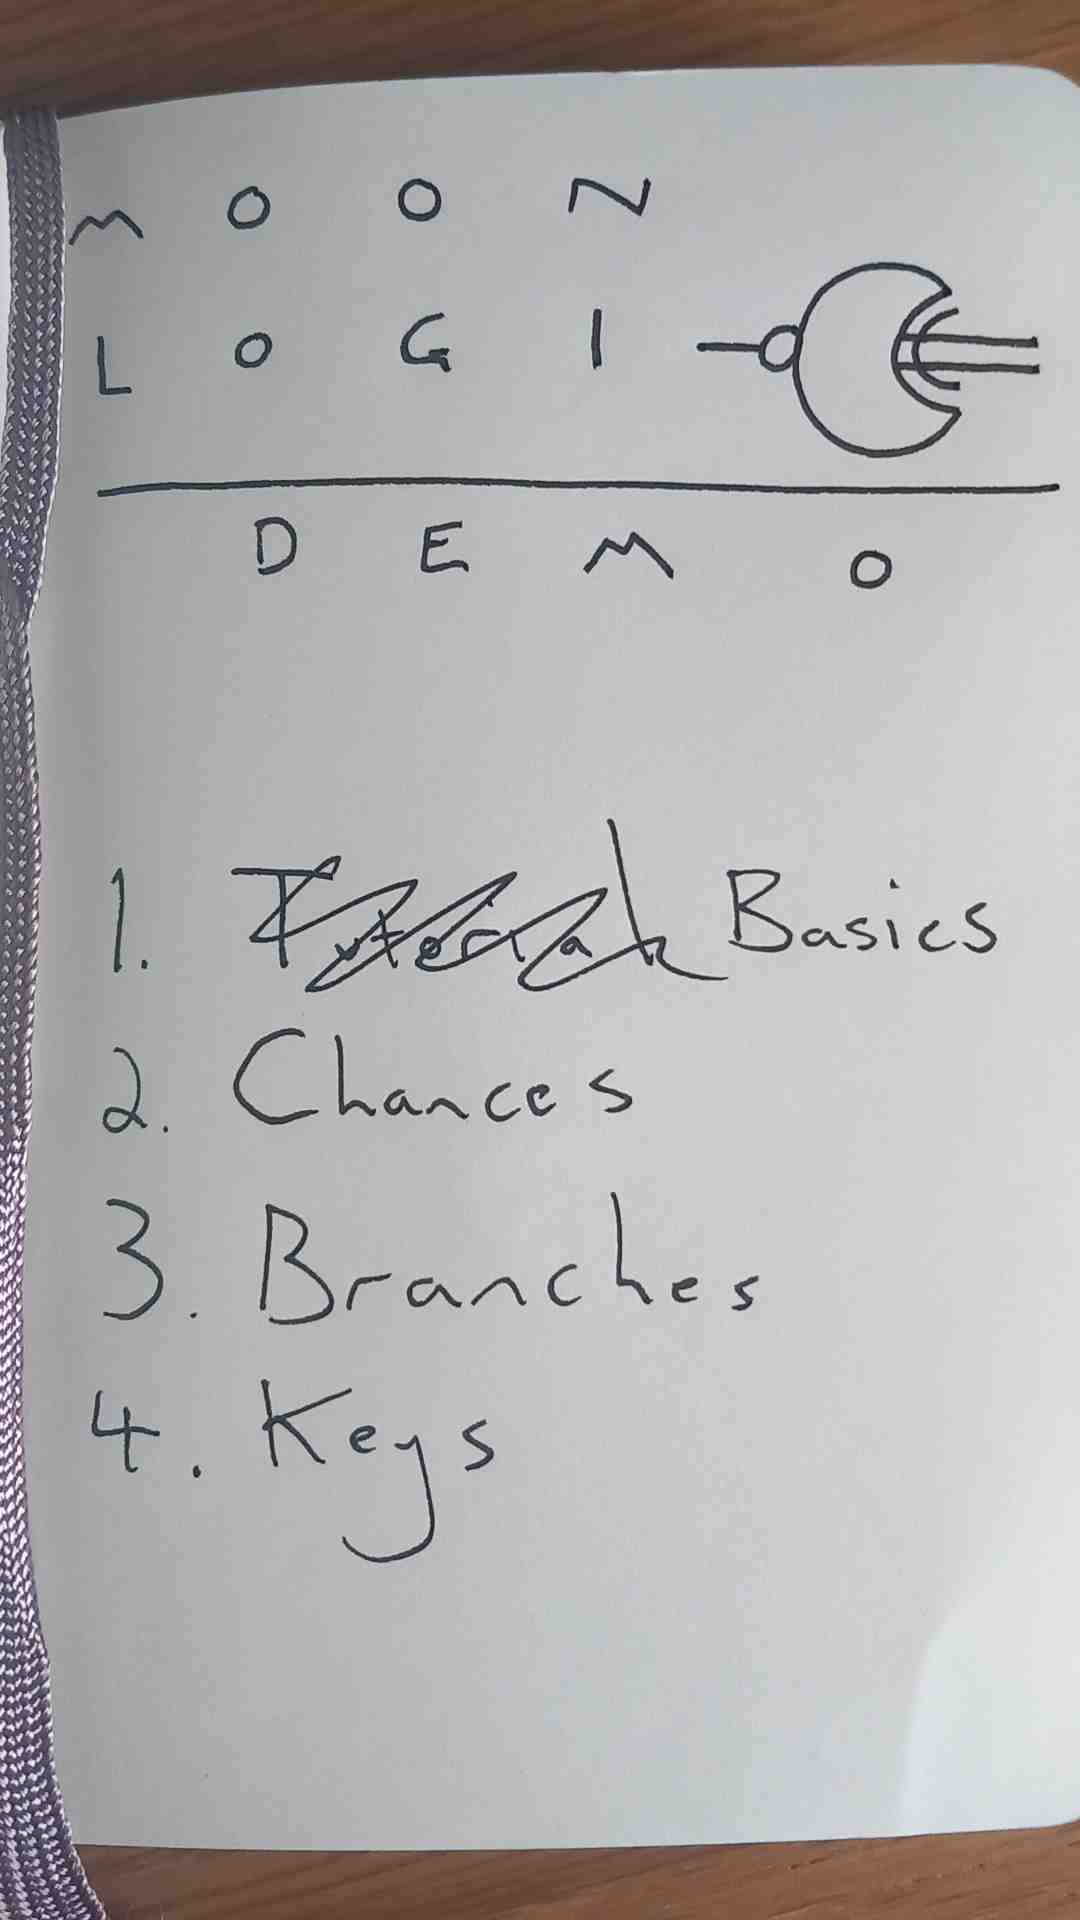 MOON
LOGI
DEMO
1. Tutorial Basics
2. Chances
3. Branches
4. Keys